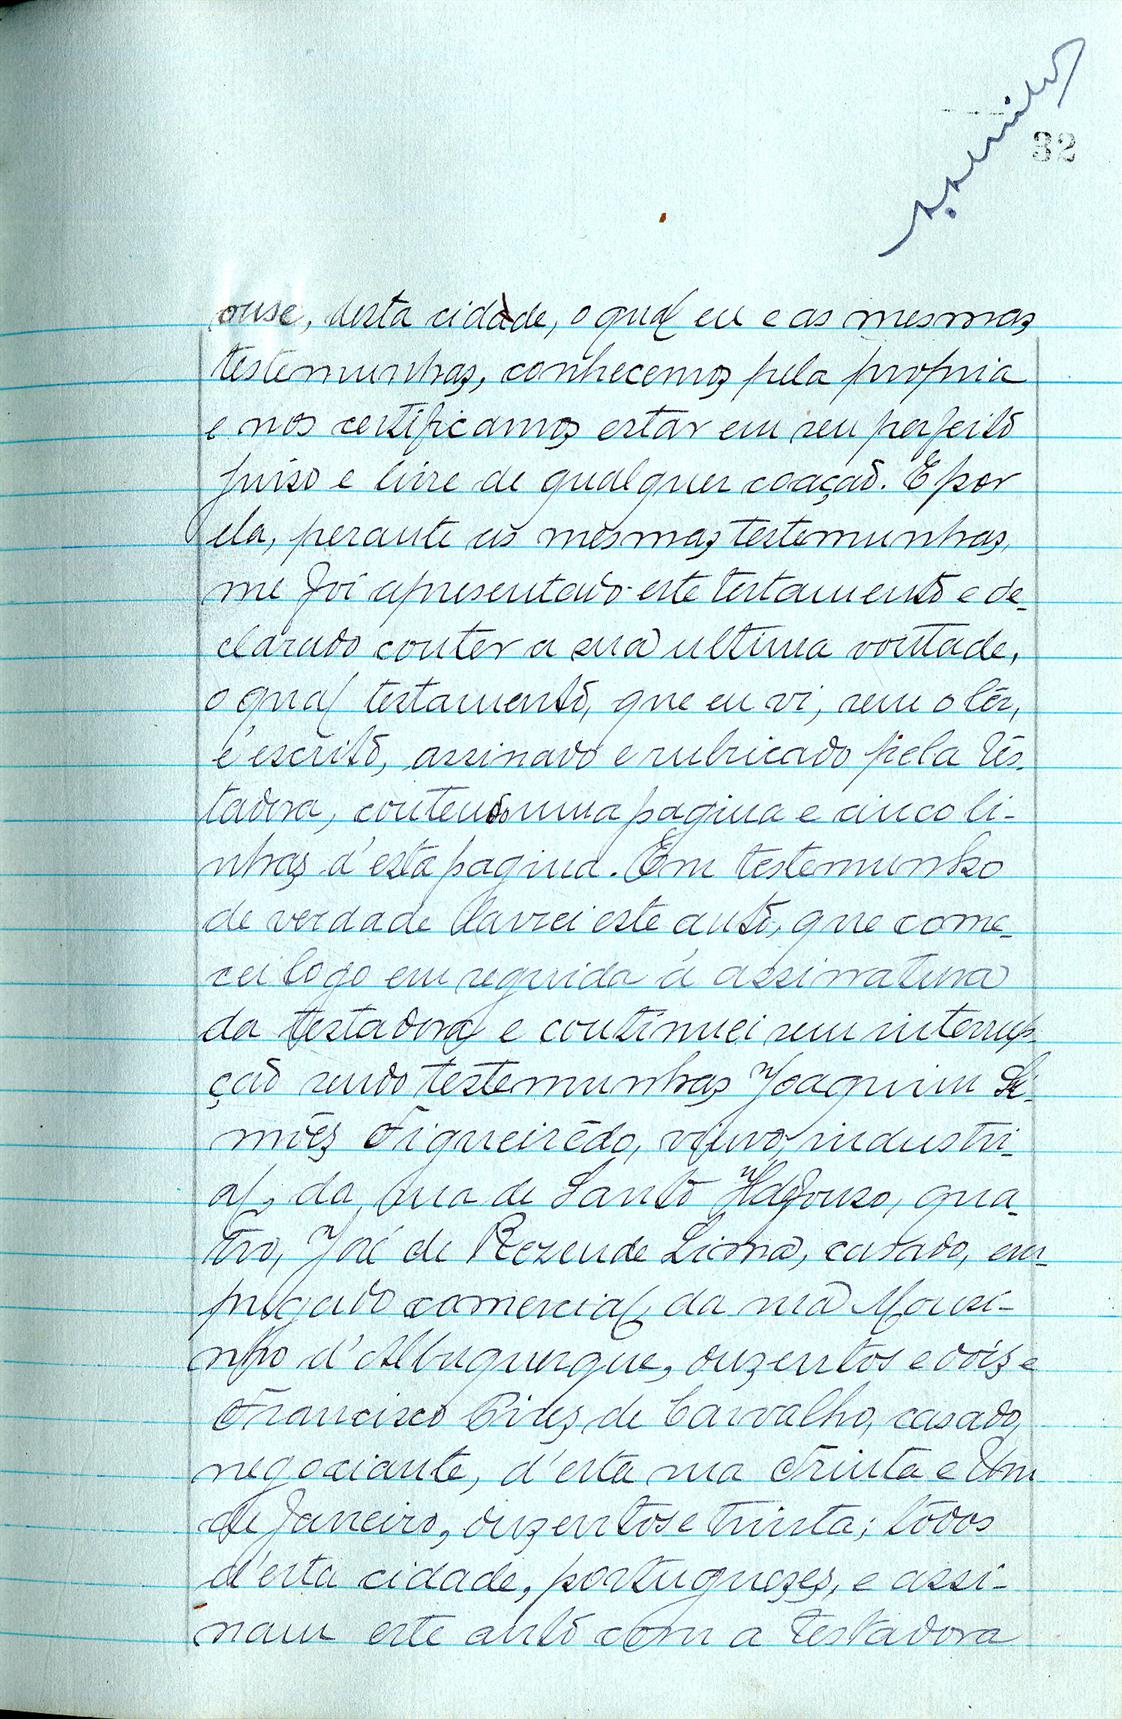 32
onse, desta cidade, o qual eu e as mesmas
testemunhas, conhecemos pela propria
e nos certificamos estar em seu perfeito
juiso e livre de qualquer coação. E por
ela, perante as mesmas testemunhas,
me foi apresentado este testamento e de-
clarado conter a sua ultima vontade,
o qual testamento, que eu vi, sem o lêr,
é escrito, assinado e rubricado pela tes-
tadora, contendo uma pagina e cinco li-
nhas d'esta pagina. Em testemunho
de verdade lavrei este auto, que come-
cei logo em seguida á assinatura
da testadora e continuei sem interrup-
ção sendo testemunhas Joaquim Si-
mões Figueirêdo, viuvo, industri-
al, da rua de Santo Ildefonso, qua-
tro, José de Rezende Lima, casado, em-
pregado comercial, da rua Mousi-
nho d'Albuquerque, duzentos e dois e
Francisco Pires de Carvalho, casado,
negociante, d'esta rua Trinta e Um
de Janeiro, duzentos e trinta; todos
d'esta cidade, portuguezes, e assi-
nam este auto com a testadora